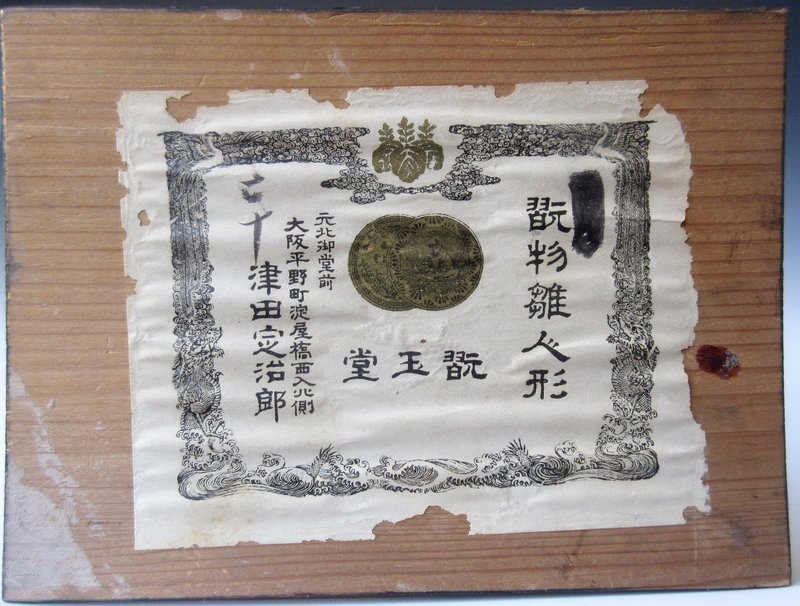 翫物雛人形
翫玉堂
元北御堂前
大阪平野町淀屋橋西入北側
津田定治郎